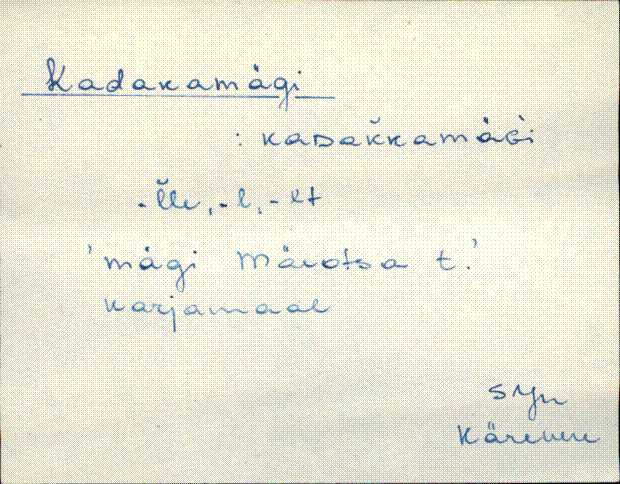 Kadakamägi
: kaDak̆kamäGi
-l̆le, -l, -lt
'mägi Märdtsa t.'
karjamaal
SJn
Kärevere